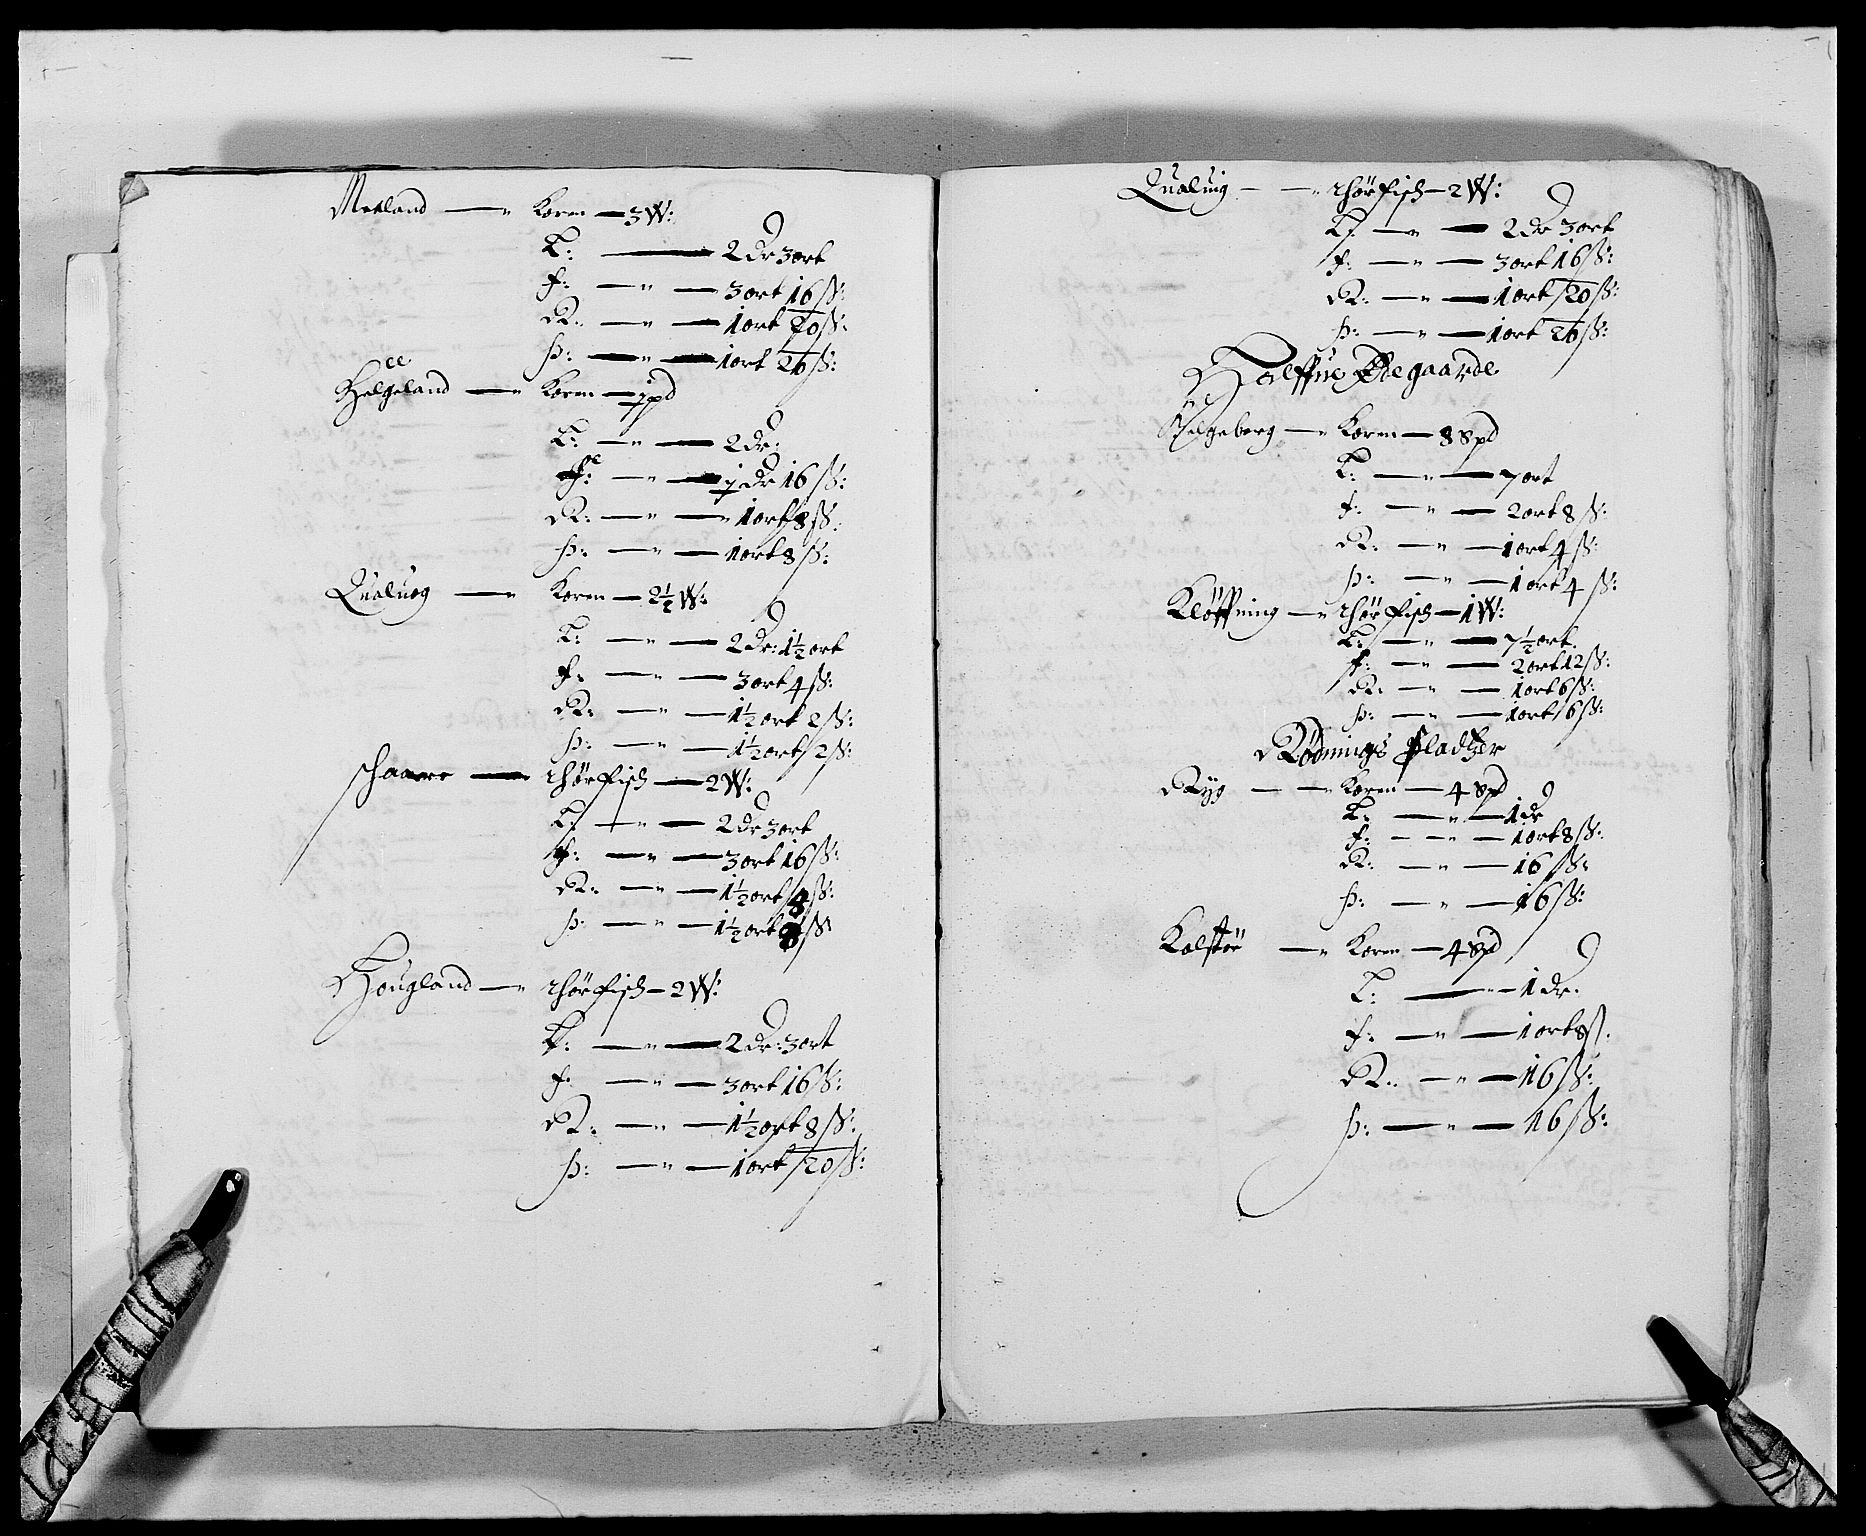 Meeland — Koren — 3 W:
L: — 2 Dr 3 ort
F: — 3 ort 16 ß:
R: — 1 ort 20 ß:
H: — 1 ort 26 ß:
Helgeland — Koren — j pd
L: — 2 Dr:
F: — j Dr 16 ß:
R: — 1 ort 8 ß:
H: — 1 ort 8 ß:
Qualuog — Koren — 2½ W:
L: — 2 Dr: 1½ ort
F: — 3 ort 4 ß:
R: — 1½ ort 2 ß:
H: — 1½ ort 2 ß:
schaarre — thørfisch — 2 W:
L: — 2 Dr 3 ort
F: — 3 ort 16 ß:
R: — 1½ ort 8 ß:
H: — 1½ ort 8 ß
Hougland — thørfisch — 2 W:
L: — 2 Dr: 3 ort
F: — 3 ort 16 ß:
R: — 1½ ort 8 ß:
H: — 1 ort 20 ß:
Qualuig — thørfisch — 2 W:
L: — 2 Dr 3 ort
F: — 3 ort 16 ß:
R: — 1 ort 20 ß:
H: — 1 ort 26 ß:
Halffue Ødegaarde
Koren — 8 Spd
L: — 7 ort
F: — 2 ort 8 ß:
R: — 1 ort 4 ß:
H: — 1 ort 4 ß:
Kløffning — thørfisch — 1 W:
L: — 7½ ort
F: — 2 ort 12 ß:
R: — 1 ort 6 ß:
H: — 1 ort 6 ß:
Rødnings Pladtzer
Ryg — Koren — 4 Spd
L: — 1 dr
F: — 1 ort 8 ß:
R: — 16 ß:
H: — 16 ß:
Kalstøe — Koren — 4 Spd
L: — 1 dr.
F: — 1 ort 8 ß.
R: — 16 ß:
H: — 16 ß: